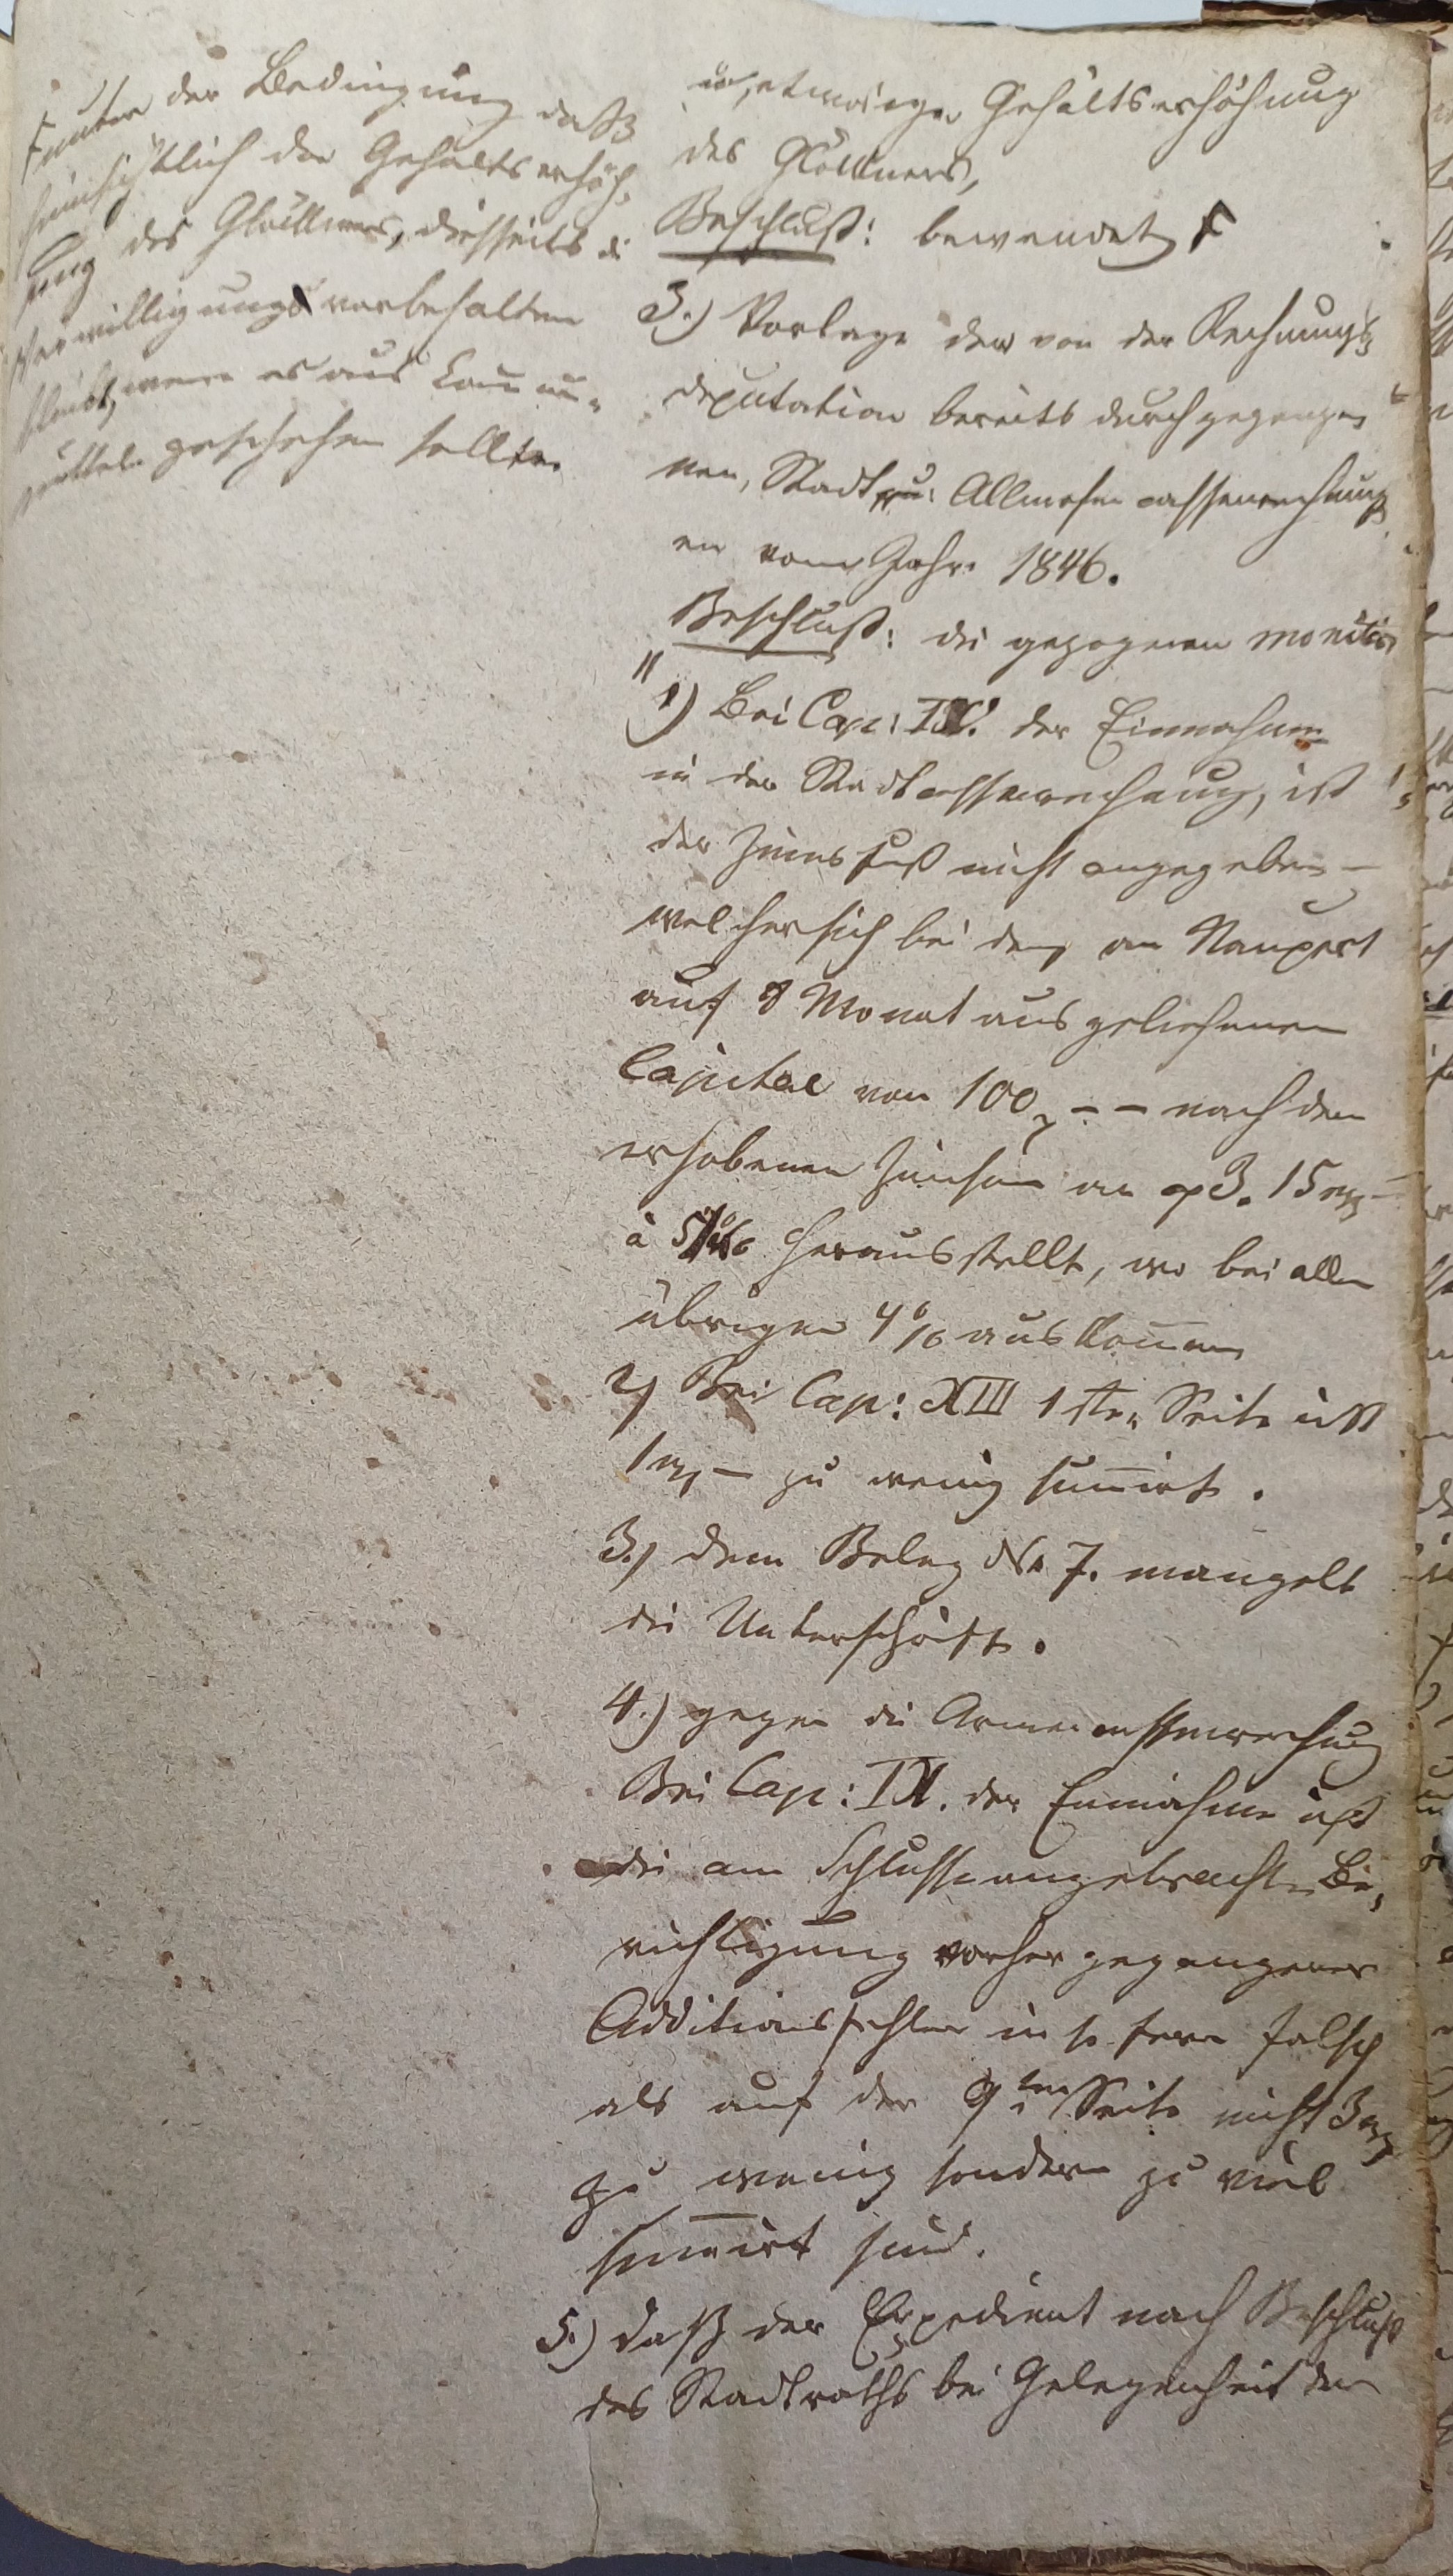 F unter der Bedingung daß
hinsichtlich der Gehaltserhöh-
ung des Glöckners, diesseits die
Verwilligung vorbehalten
bleibt, wenn es aus Commun-
mitteln geschehen sollte.
etwaiger Gehaltserhöhung
des Glöckners,
Beschluß: bewendet F
3.) Vorlage der von der Rechnungs
deputation bereits durchgegange
nen, Stadt u: Allmosencassenrechnung
en vom Jahre 1846.
Beschluß: die gezogenen monita
" 1) Bei Cap: IX. der Einnahme
in der Stadtcassenrechnung, ist
der Zinsfuß nicht angegeben –
welcher sich bei dem an Naupert
auf 8 Monat ausgeliehenen
Capital von 100 – – nach den
erhobenen Zinsen an 3. 15 –
à 5 % herausstellt, wo bei allen
übrigen 4 % auskommen
2) Bei Cap: XIII 1ster Seite ist
1 – zu wenig sum̅irt.
3.) dem Beleg No 7. mangelt
die Unterschrift.
4.) gegen die Armencassenrechnung
Bei Cap: IX. der Einnahme ist
die am Schlusse angebrachte Be-
richtigung vorhergegangener
Additionsfehler in so fern falsch
als auf der 9ten Seite nicht 3
zu wenig sondern zu viel
sum̅irt sind.
5.) daß der Expedient nach Beschluß
des Stadtraths bei Gelegenheit der